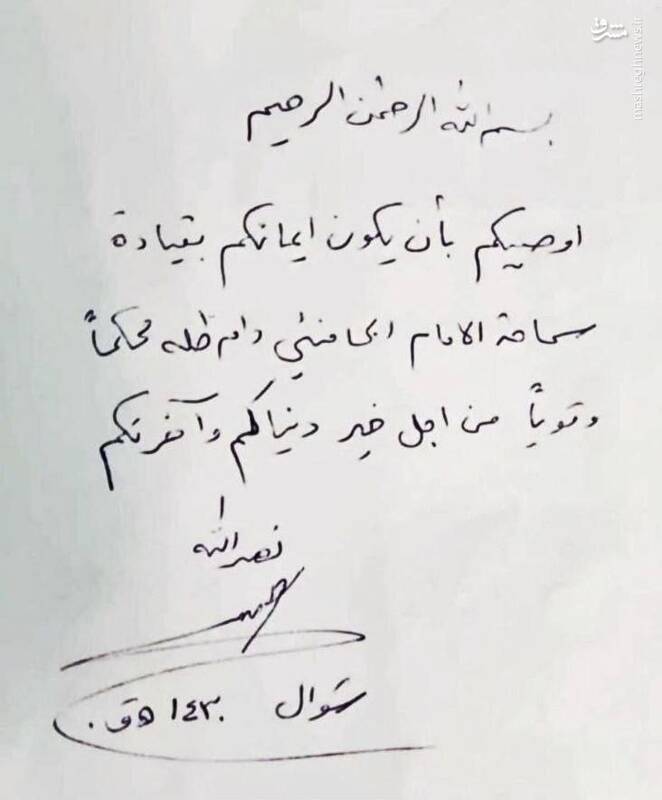 بسم الله الرحمن الرحيم
اوصيكم بأن يكون ايمانكم بقيادة
سماحة الامام الخامنئي دام ظله محكماً
وقوياً من اجل خير دنياكم وآخرتكم
نصرالله
شوال ١٤٣٠ هـ ق.
مشرق
mashreghnews.ir